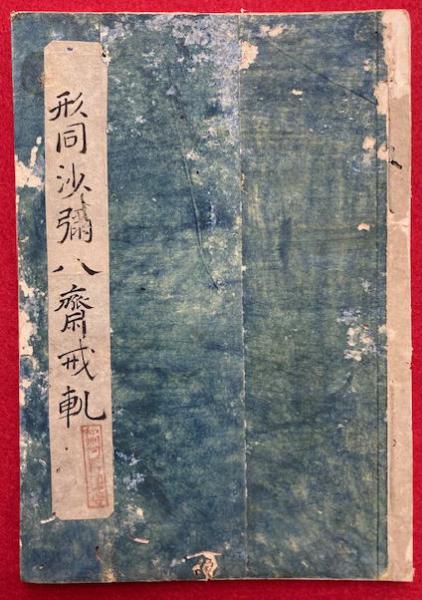 形同沙彌八齋戒軌